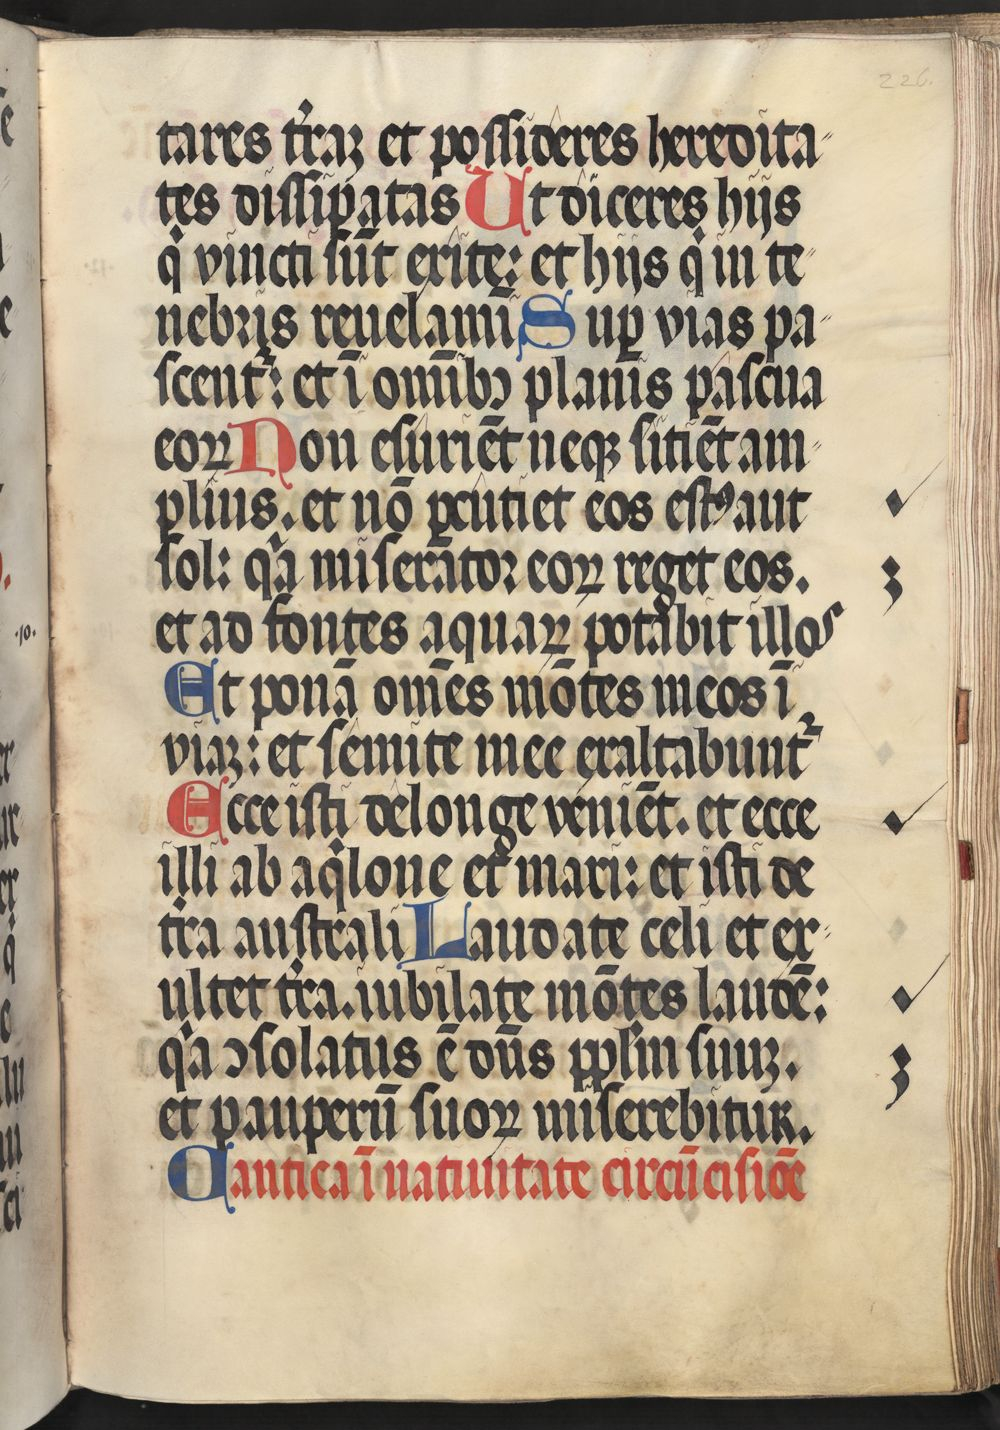 226.
tares t̉raꝫ et possideres heredita-
tes dissipatas Ut diceres hijs
q̉ vincti sūt exite: et hijs q̉ in te-
nebris reuelamī Sup̱ vias pa-
scent᷑: et ī omībꝰ planis pascua
eoꝝ Non esuriēt neqꝫ sitiēt am-
plius. et nō ꝑcutiet eos estꝰ aut
sol: q̉a miserator eoꝝ reget eos.
et ad fontes aquaꝝ potabit illos
Et ponā om̄es mōtes meos ī
viaꝫ: et semite mee exaltabunt᷑
Ecce isti delonge veniēt. et ecce
illi ab aq̉lone et mari: et isti de
t̉ra australi Laudate celi et ex-
ultet t̉ra. iubilate mōtes laudē:
q̉a ↄsolatus ē dn̄s pplm suuꝫ.
et pauperū suoꝝ miserebitur.
Cantica ī natiuitate circūcisiōe
·10·